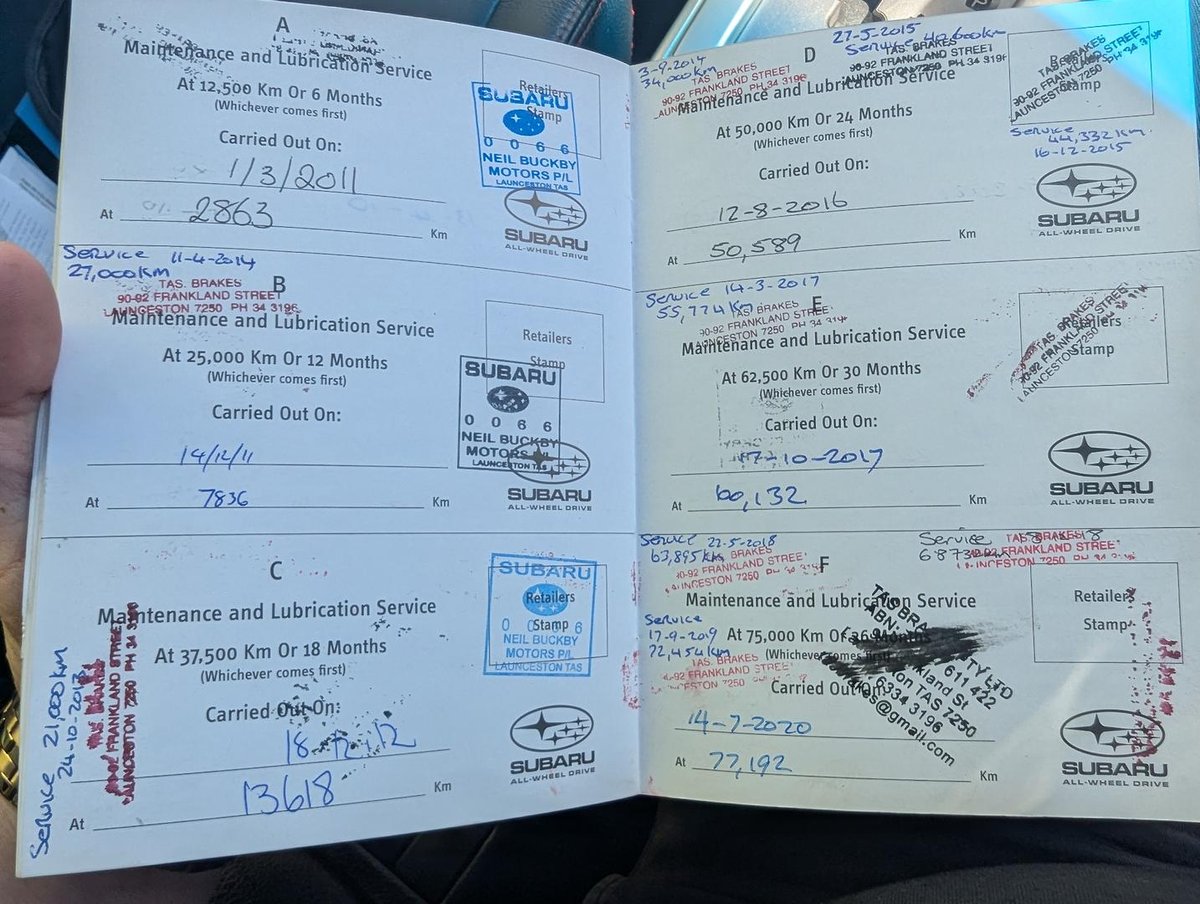 A
Maintenance and Lubrication Service
At 12,500 Km Or 6 Months
(Whichever comes first)
Carried Out On:
1/3/2011
At 2863 Km
Retailers
Stamp
SUBARU
0 0 6 6
NEIL BUCKBY
MOTORS P/L
LAUNCESTON TAS
SUBARU
ALL-WHEEL DRIVE
Service 11-4-2014
27,000km
TAS. BRAKES
90-92 FRANKLAND STREET
LAUNCESTON 7250 PH 34 3196
B
Maintenance and Lubrication Service
At 25,000 Km Or 12 Months
(Whichever comes first)
Carried Out On:
14/12/11
At 7836 Km
Retailers
Stamp
SUBARU
0 0 6 6
NEIL BUCKBY
MOTORS P/L
LAUNCESTON TAS
SUBARU
ALL-WHEEL DRIVE
C
Maintenance and Lubrication Service
At 37,500 Km Or 18 Months
(Whichever comes first)
Carried Out On:
18-12-12
At 13618 Km
Service 21,000km
24-10-2013
TAS BRAKES
90-92 FRANKLAND STREET
LAUNCESTON 7250 PH 34 3196
SUBARU
Retailers
Stamp
0 0 6 6
NEIL BUCKBY
MOTORS P/L
LAUNCESTON TAS
SUBARU
ALL-WHEEL DRIVE
3-9-2014
34,000km
TAS. BRAKES
90-92 FRANKLAND STREET
LAUNCESTON 7250 PH 34 3196
27-5-2015
Service 40,600km
TAS. BRAKES
90-92 FRANKLAND STREET
LAUNCESTON 7250 PH 34 3196
D
Maintenance and Lubrication Service
At 50,000 Km Or 24 Months
(Whichever comes first)
Carried Out On:
12-8-2016
At 50,589 Km
Retailers
Stamp
TAS. BRAKES
90-92 FRANKLAND STREET
LAUNCESTON 7250 PH 34 3196
Service 44,332 km.
16-12-2015
SUBARU
ALL-WHEEL DRIVE
Service 14-3-2017
55,774 km
TAS BRAKES
90-92 FRANKLAND STREET
LAUNCESTON 7250 PH 34 3196
E
Maintenance and Lubrication Service
At 62,500 Km Or 30 Months
(Whichever comes first)
Carried Out On:
17-10-2017
At 60,132 Km
Retailers
Stamp
TAS. BRAKES
90-92 FRANKLAND STREET
LAUNCESTON 7250 PH 34 3196
SUBARU
ALL-WHEEL DRIVE
Service 22-5-2018
63,895km
TAS. BRAKES
90-92 FRANKLAND STREET
LAUNCESTON 7250 PH 34 3196
Service
TAS. BRAKES
90-92 FRANKLAND STREET
LAUNCESTON 7250 PH 34 3196
F
Maintenance and Lubrication Service
At 75,000 Km Or 36 Months
(Whichever comes first)
Carried Out On:
14-7-2020
At 77,192 Km
Service
17-9-2019
72,454 km
TAS. BRAKES
90-92 FRANKLAND STREET
LAUNCESTON 7250
TAS BRA PTY LTD
ABN 611 422
Frankland St
TAS 7250
6334 3196
@gmail.com
Retailers
Stamp
SUBARU
ALL-WHEEL DRIVE